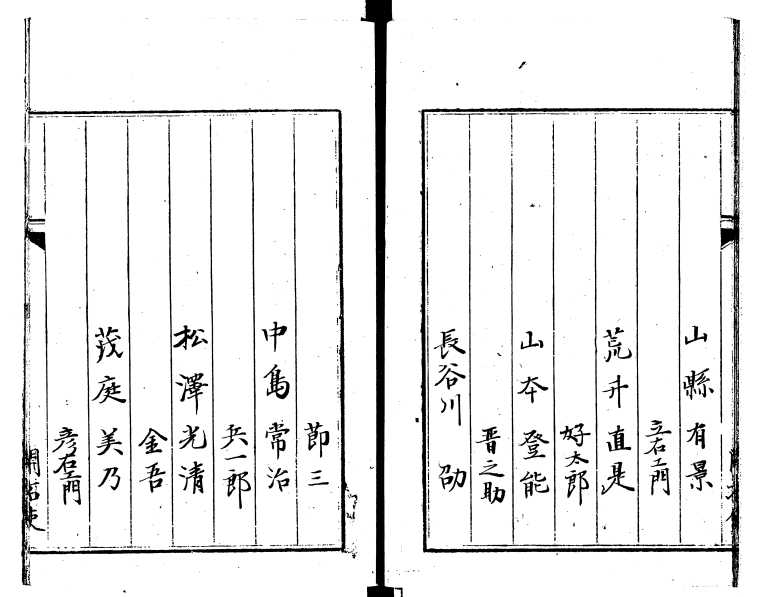 山縣有景
立右エ門
荒井直是
好太郎
山本登能
晋之助
長谷川 劭
節三
中島常治
兵一郎
松澤光清
金吾
茂庭美乃
彦右エ門
開拓使